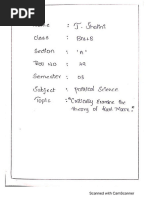 Name : J. Snehit
Class : BA+B
Section : 'A'
Roll NO : 49
Semester : 03
Subject : political Science
Topic : "Critically Examine the
theory of Karl Marx."
Scanned with CamScanner